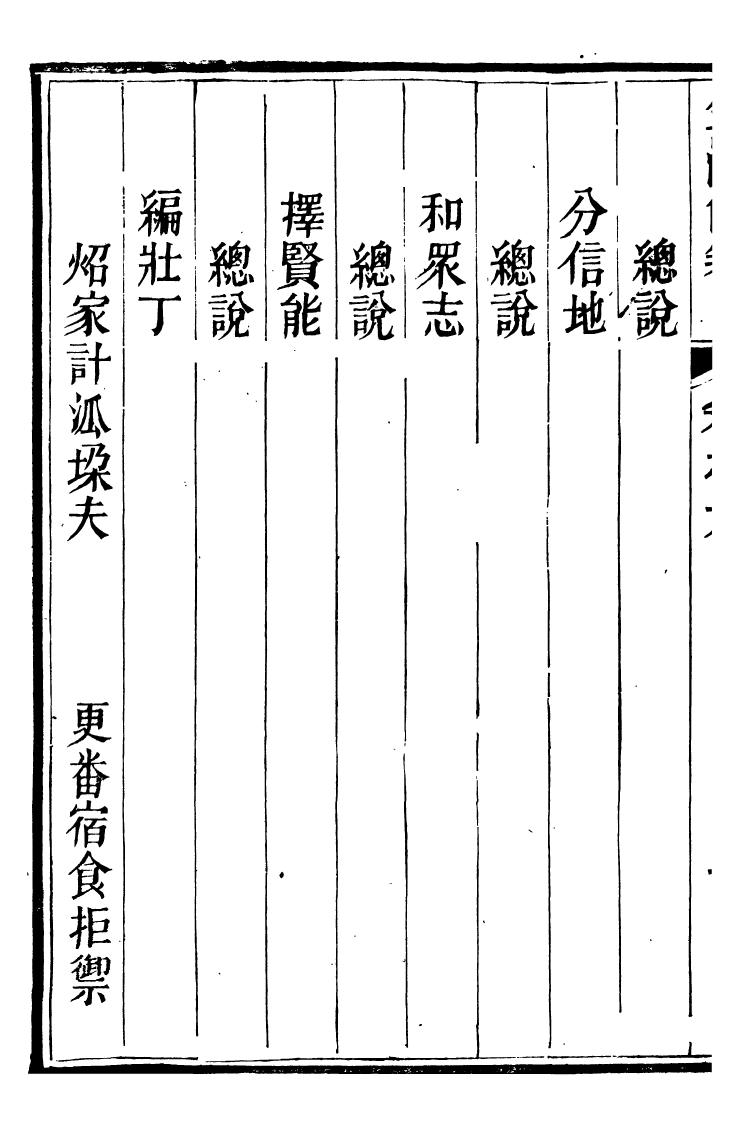 總說
分信地
總說
和眾志
總說
擇賢能
總說
編壯丁
炤家計派垜夫　更番宿食拒禦